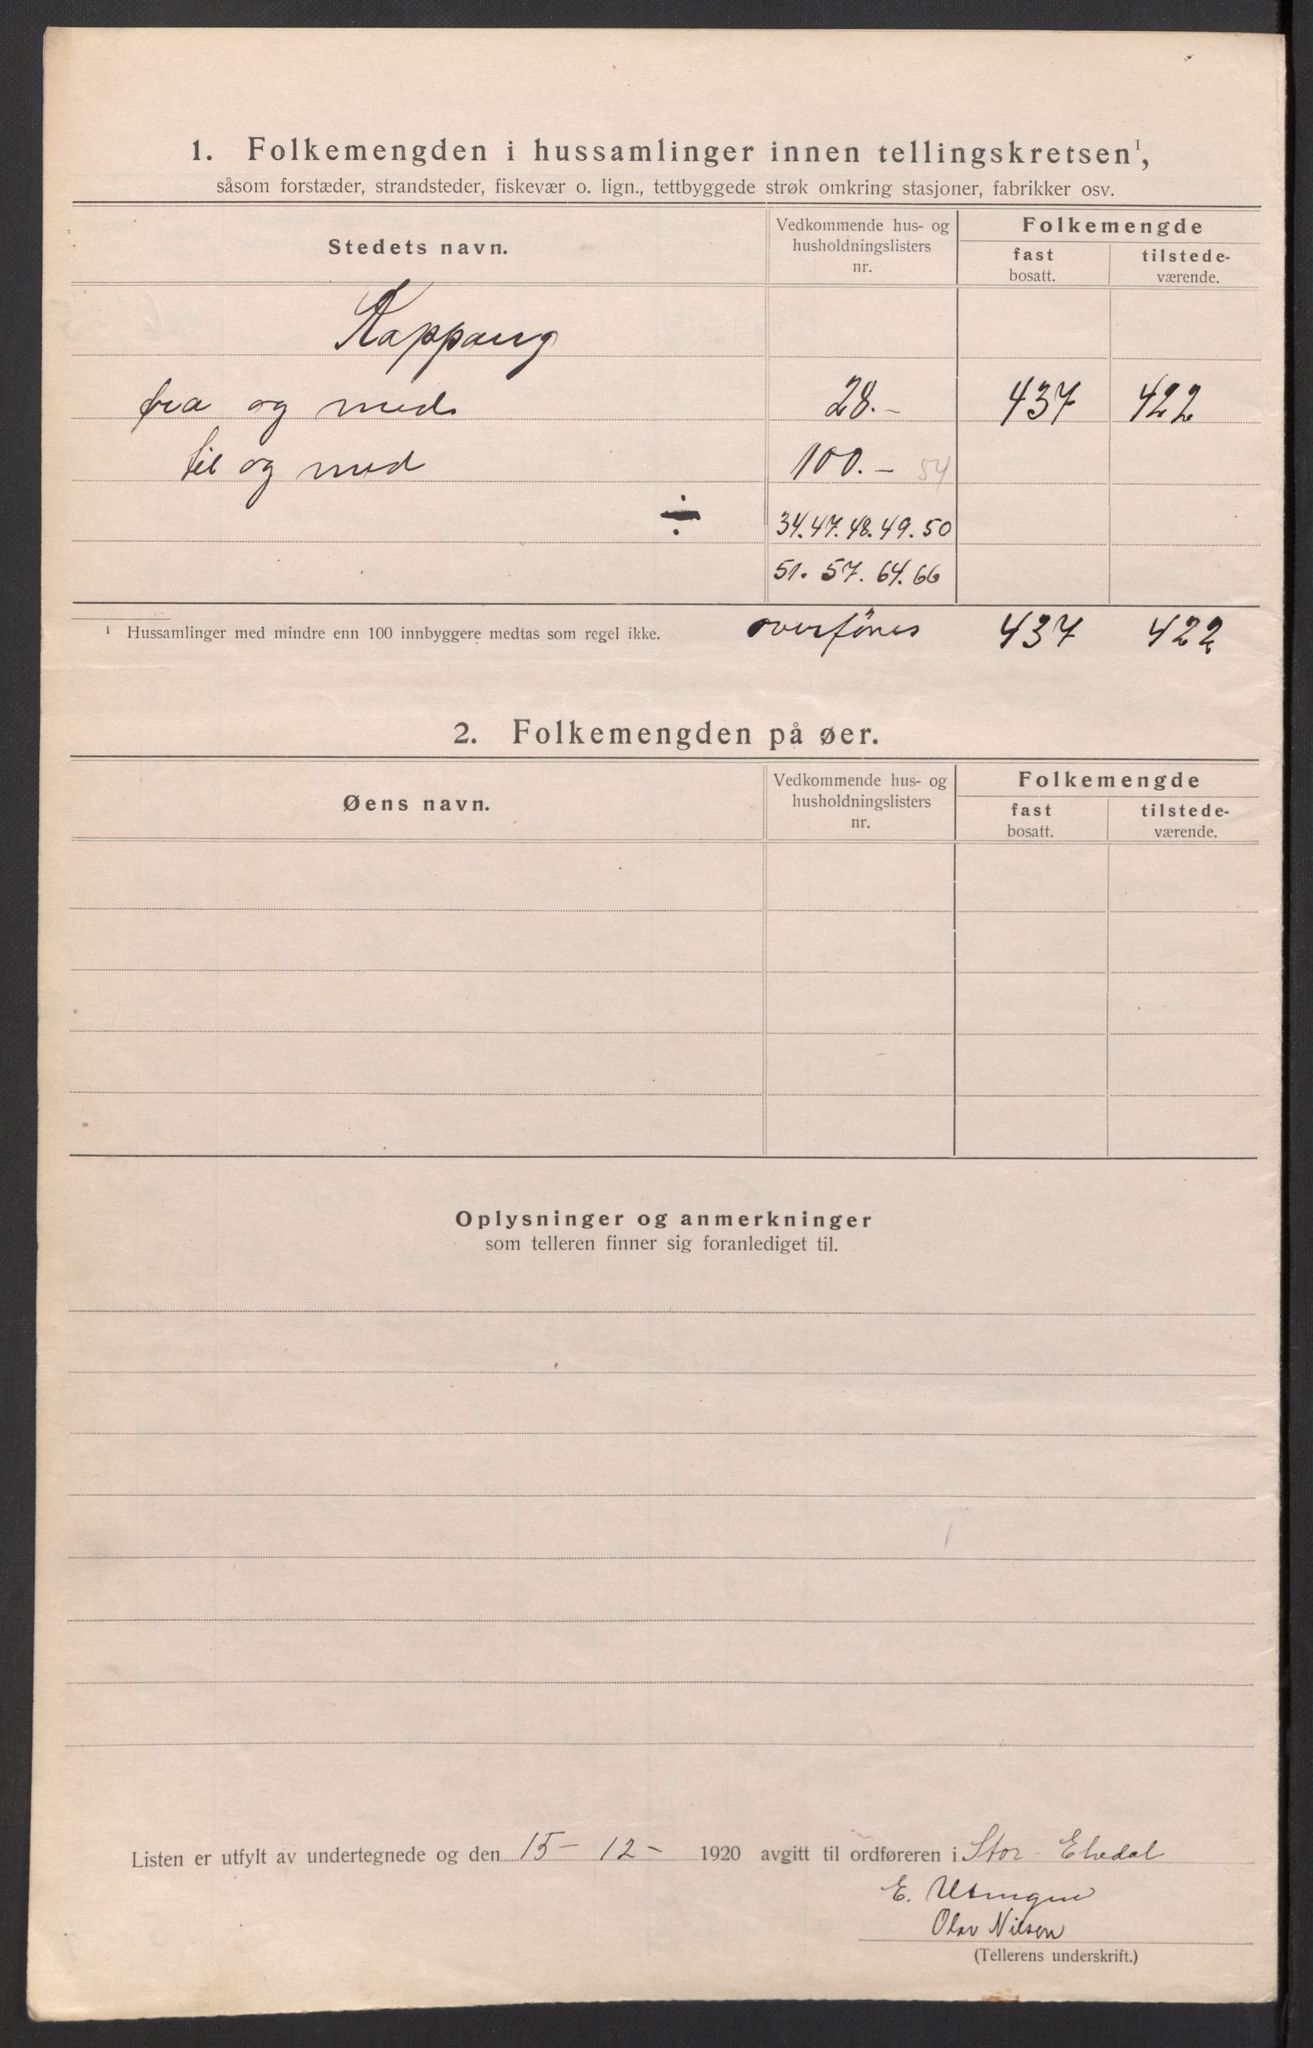 1. Folkemengden i hussamlinger innen tellingskretsen¹,
såsom forstæder, strandsteder, fiskevær o. lign., tettbyggede strøk omkring stasjoner, fabrikker osv.
Stedets navn. Vedkommende hus- og husholdningslisters nr. Folkemengde
fast bosatt. tilstede-værende.
Koppang
fra og med 28.- 437 422
til og med 100.- 54
÷ 34. 47. 48. 49. 50
51. 57. 64. 66
¹ Hussamlinger med mindre enn 100 innbyggere medtas som regel ikke. overføres 437 422
2. Folkemengden på øer.
Øens navn. Vedkommende hus- og husholdningslisters nr. Folkemengde
fast bosatt. tilstede-værende.
Oplysninger og anmerkninger
som telleren finner sig foranlediget til.
Listen er utfylt av undertegnede og den 15- 12- 1920 avgitt til ordføreren i Stor Elvdal
E.
Olav Nilsen
(Tellerens underskrift.)